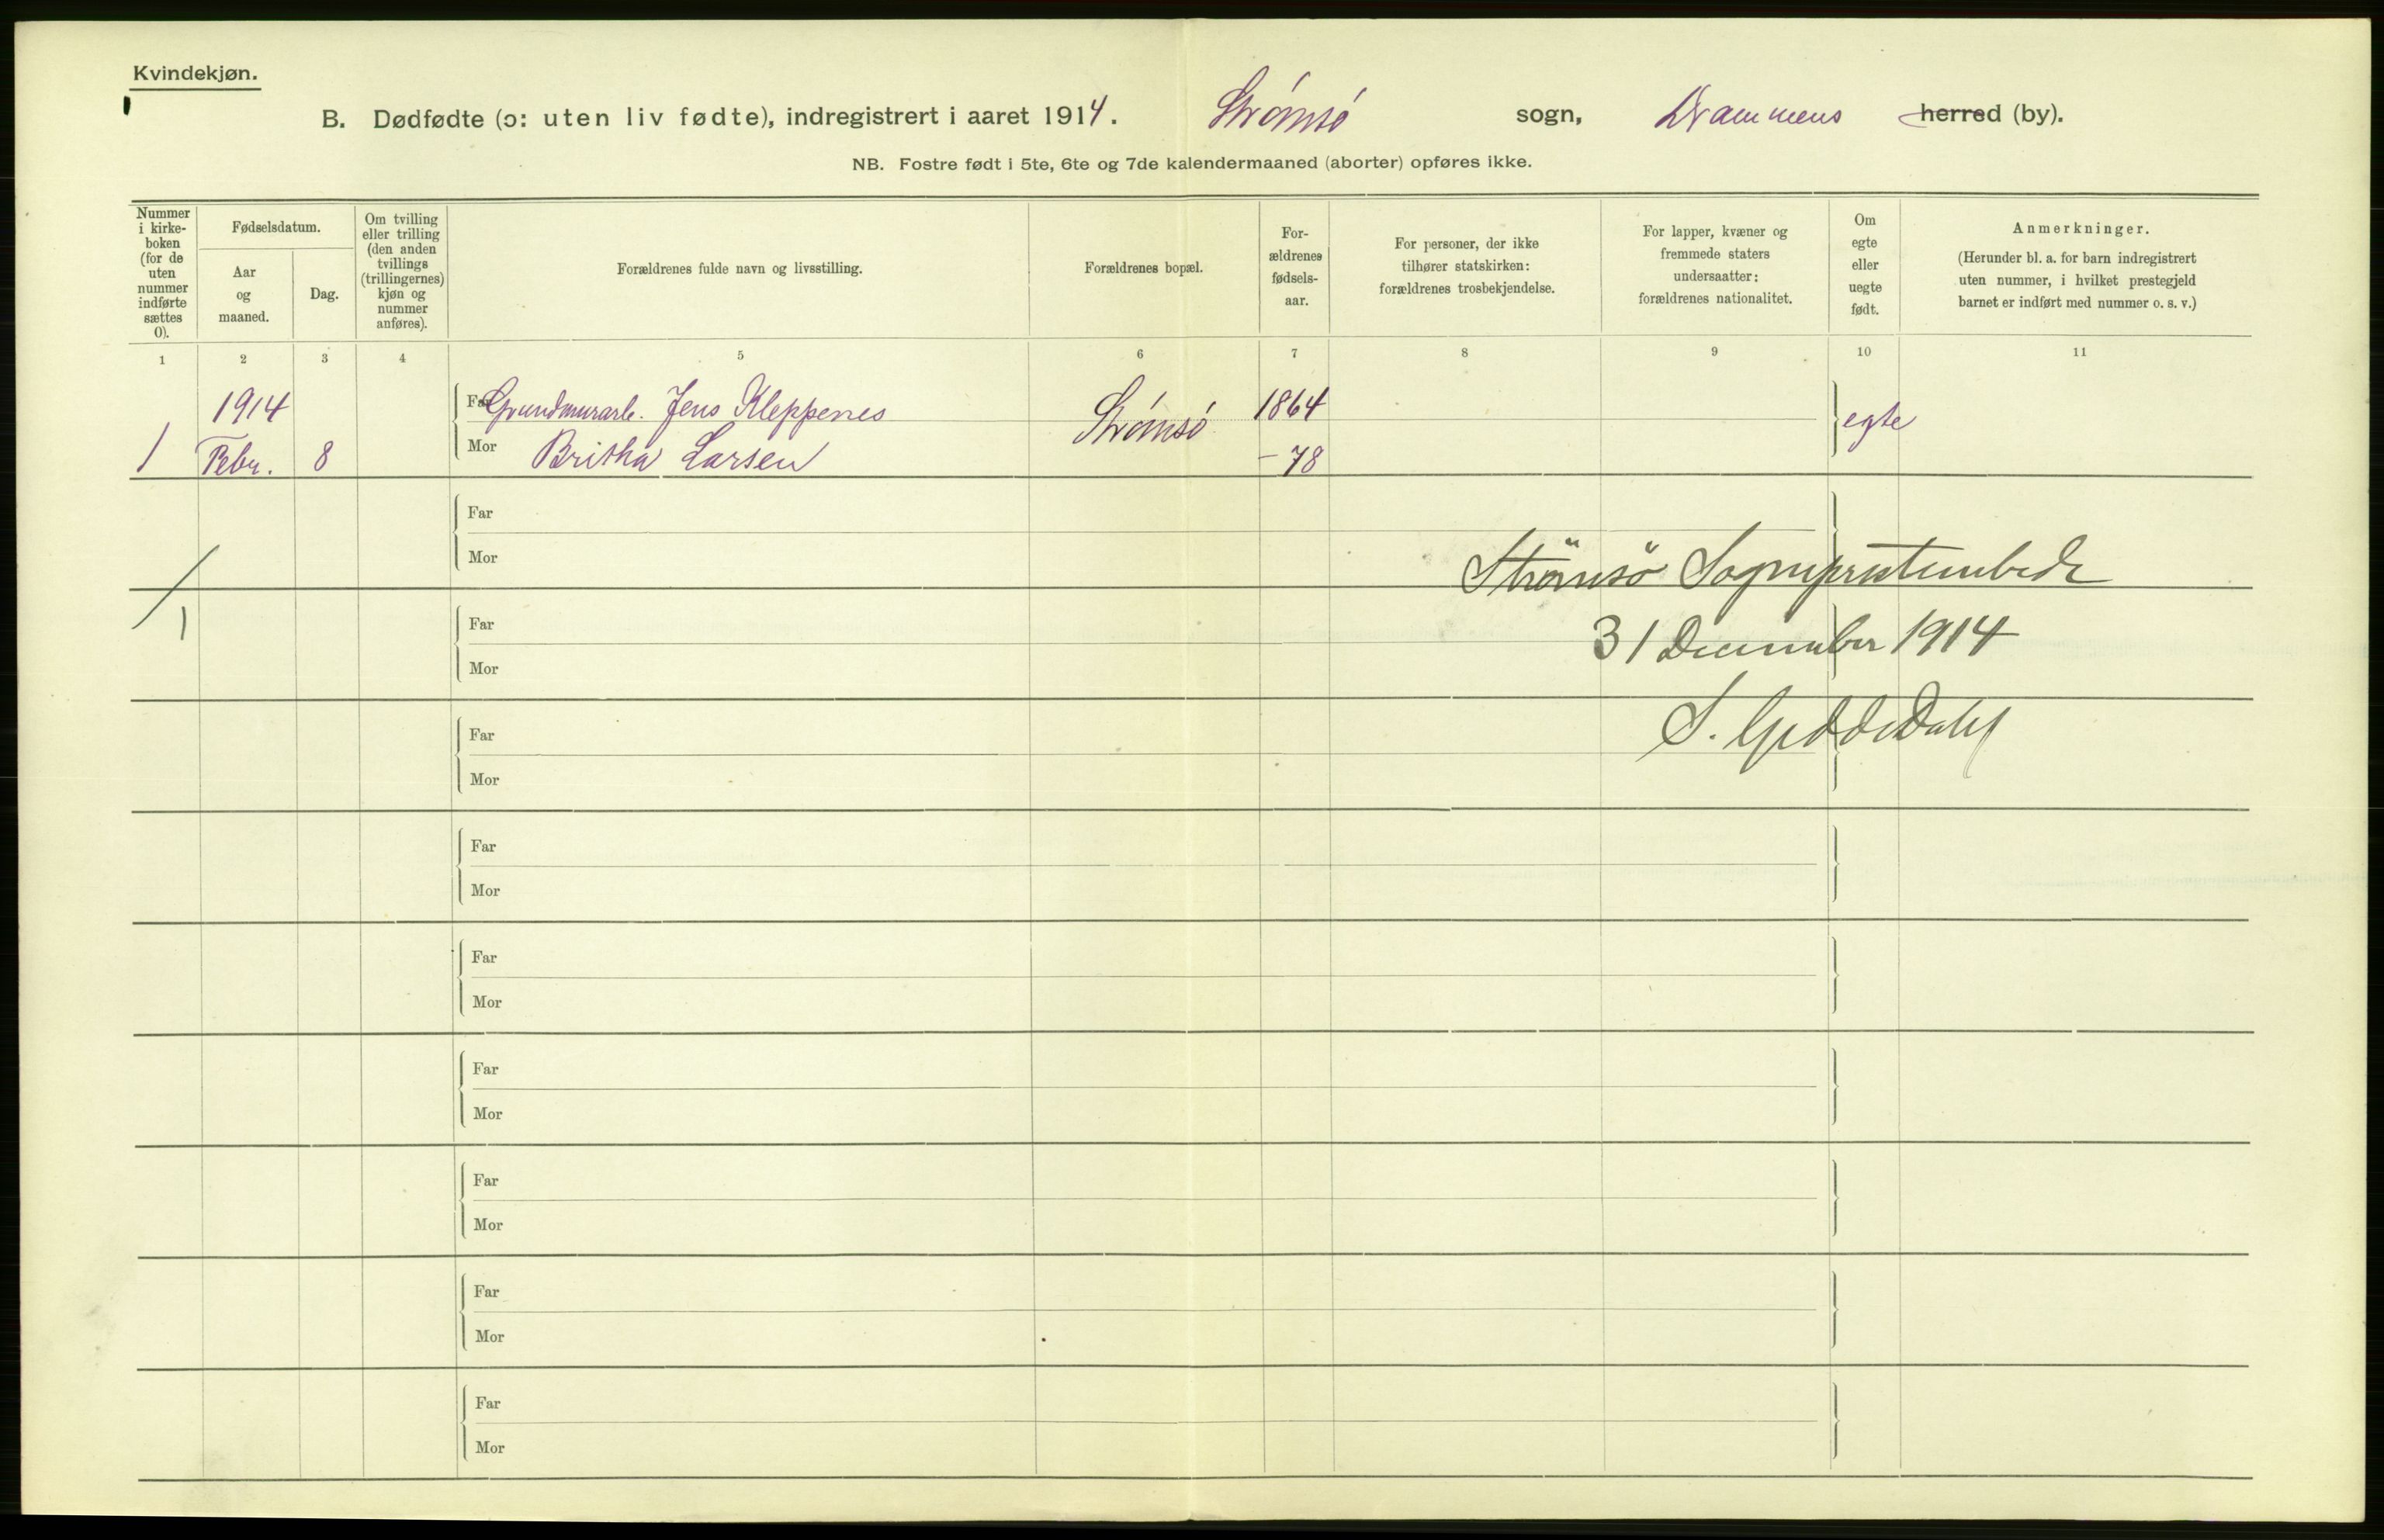 Kvindekjøn.
B. Dødfødte (ɔ: uten liv fødte), indregistrert i aaret 1914. Strømsø sogn, Drammens herred (by).
NB. Fostre født i 5te, 6te og 7de kalendermaaned (aborter) opføres ikke.
Nummer
i kirke-
boken
(for de
uten
nummer
indførte
sættes
0).
Fødselsdatum.
Aar
og
maaned.
Dag.
Om tvilling
eller trilling
(den anden
tvillings
(trillingernes)
kjøn og
nummer
anføres).
Forældrenes fulde navn og livsstilling.
Forældrenes bopæl.
For-
ældrenes
fødsels-
aar.
For personer, der ikke
tilhører statskirken:
forældrenes trosbekjendelse.
For lapper, kvæner og
fremmede staters
undersaatter:
forældrenes nationalitet.
Om
egte
eller
uegte
født.
Anmerkninger.
(Herunder bl. a. for barn indregistrert
uten nummer, i hvilket prestegjeld
barnet er indført med nummer o. s. v.)
1 2 3 4 5 6 7 8 9 10 11
1914 Far Grundmurarb. Jens Kleppenes Strømsø 1864 egte
1 Febr. 8 Mor Britha Larsen - 78
Far
Mor
Strömsö Sogneprestembede
1
Far
31 December 1914
Mor
Far
S. Gedde Dahl
Mor
Far
Mor
Far
Mor
Far
Mor
Far
Mor
Far
Mor
Far
Mor